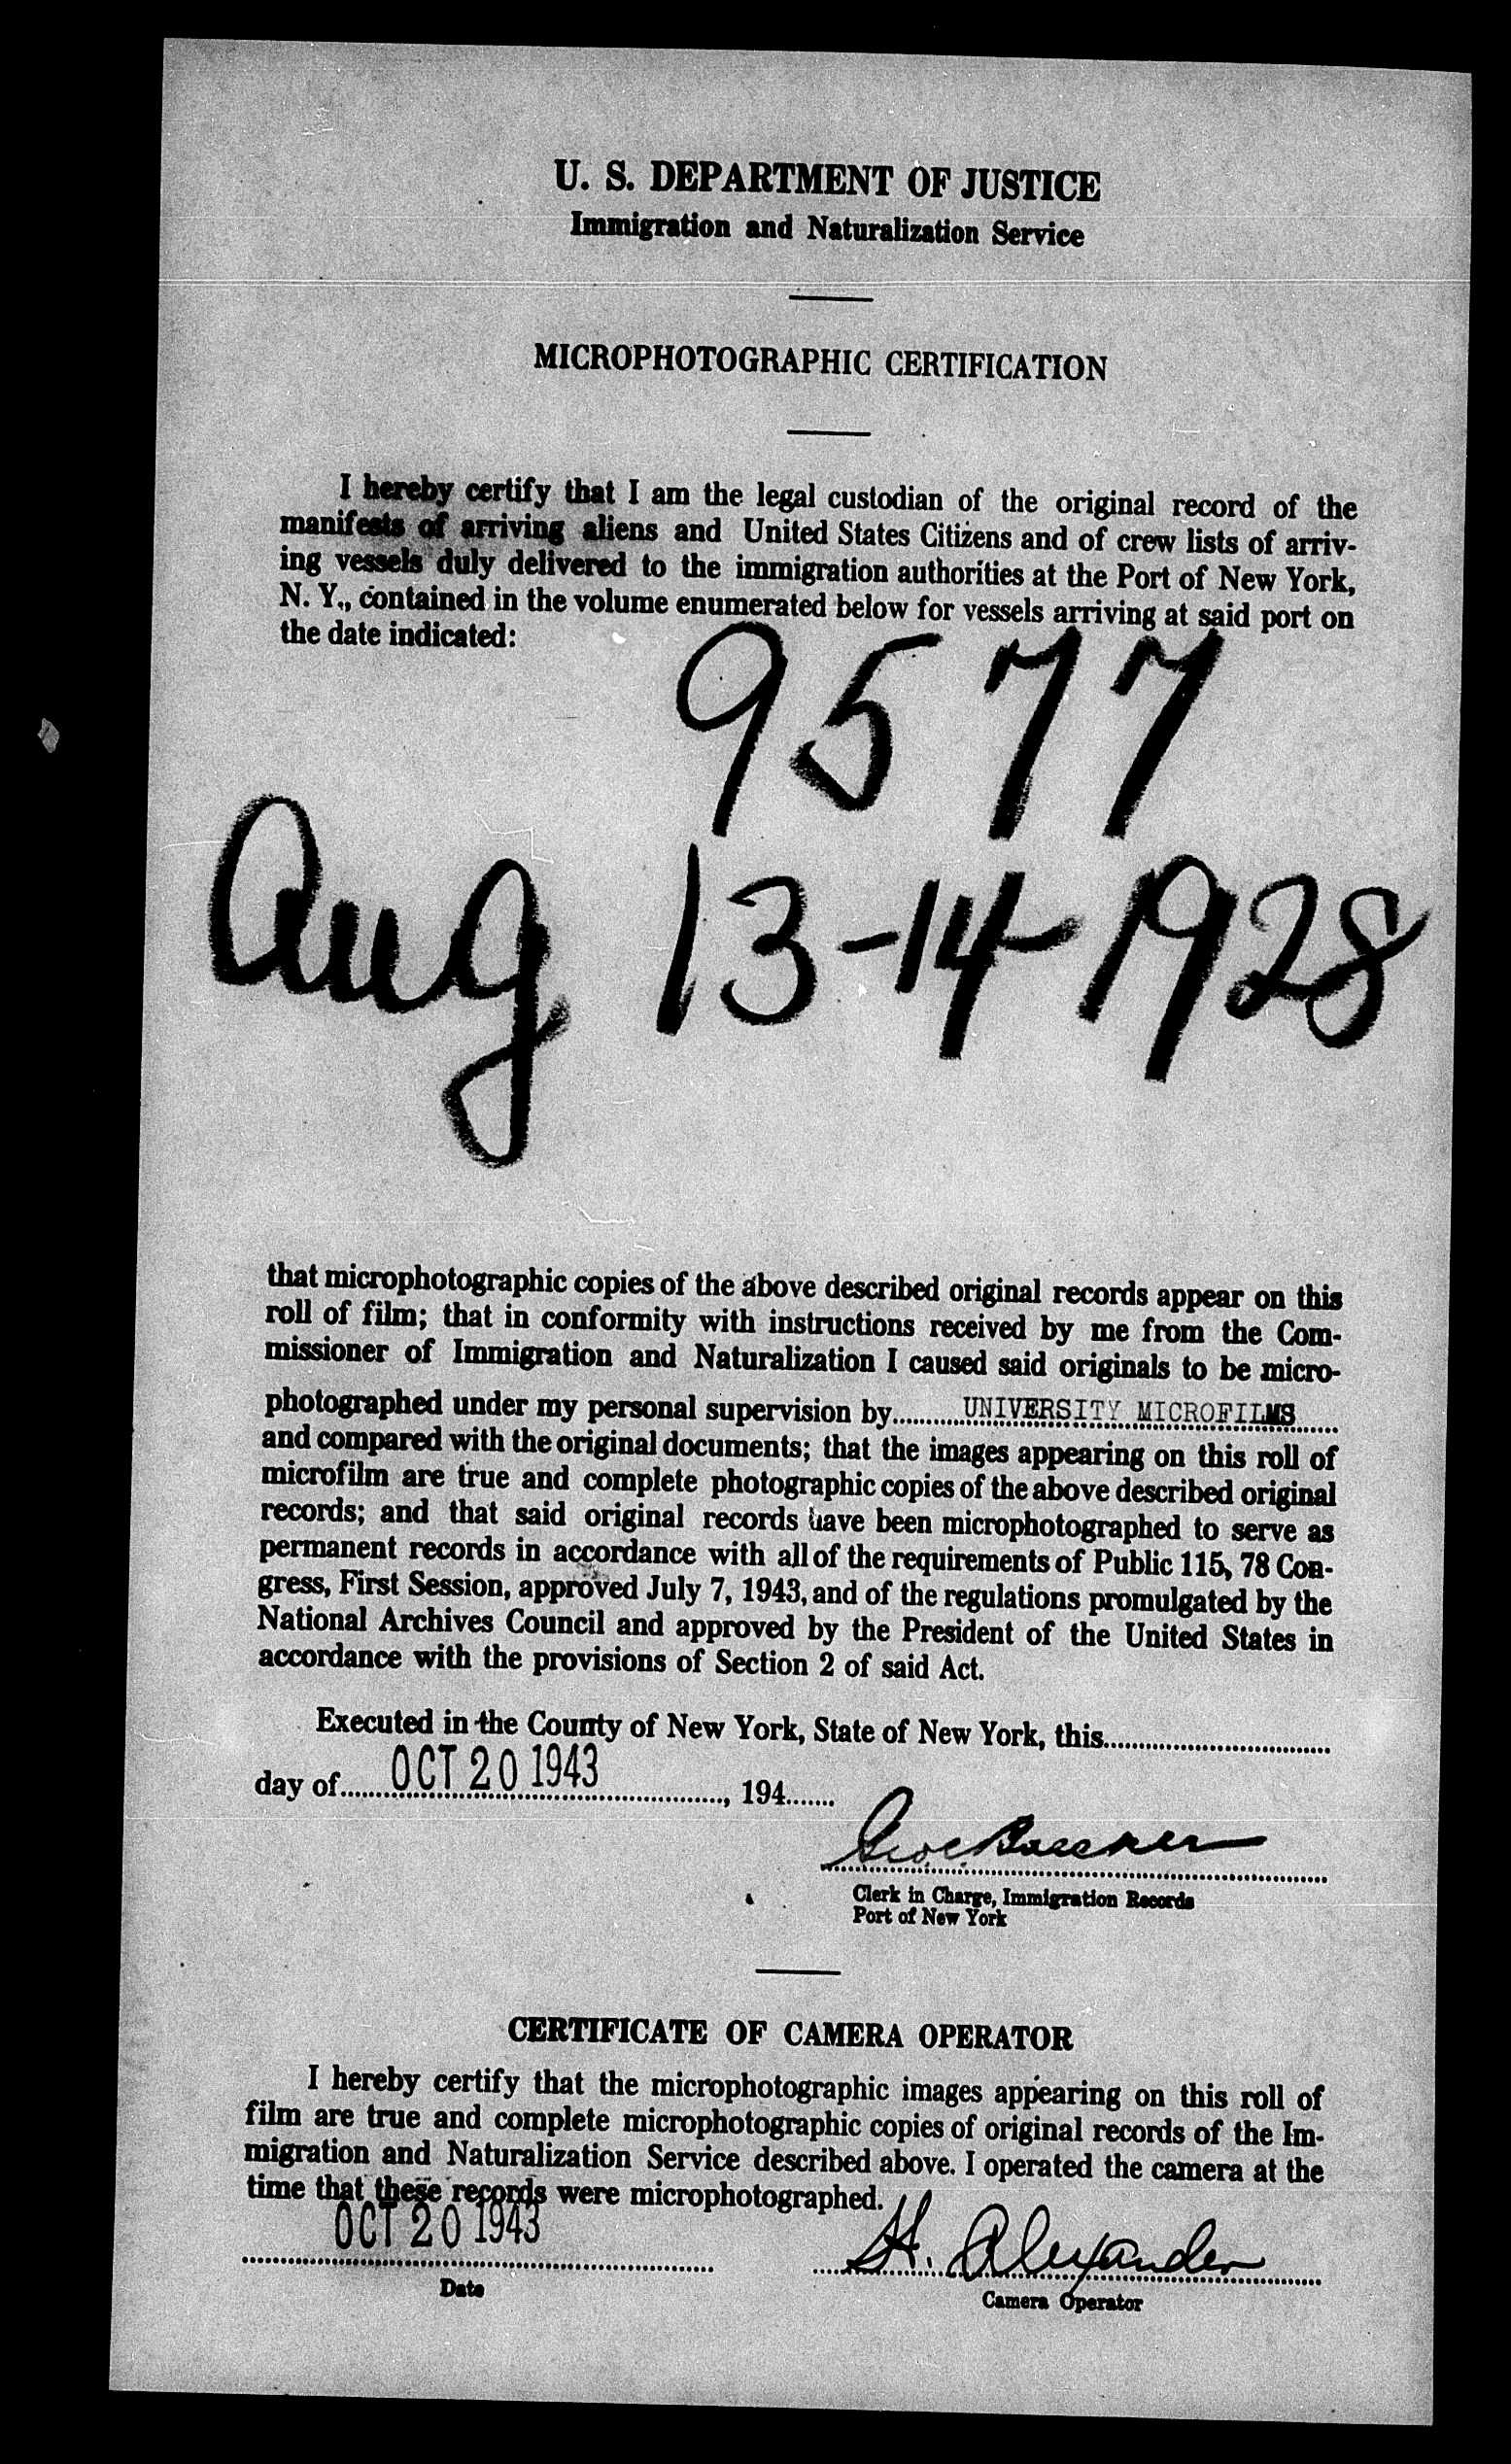 U. S. DEPARTMENT OF JUSTICE
Immigration and Naturalization Service
MICROPHOTOGRAPHIC CERTIFICATION
I hereby certify that I am the legal custodian of the original record of the
manifests of arriving aliens and United States Citizens and of crew lists of arriv-
ing vessels duly delivered to the immigration authorities at the Port of New York,
N. Y., contained in the volume enumerated below for vessels arriving at said port on
the date indicated:
9577
Aug 13-14-1928
that microphotographic copies of the above described original records appear on this
roll of film; that in conformity with instructions received by me from the Com-
missioner of Immigration and Naturalization I caused said originals to be micro-
photographed under my personal supervision by UNIVERSITY MICROFILMS
and compared with the original documents; that the images appearing on this roll of
microfilm are true and complete photographic copies of the above described original
records; and that said original records have been microphotographed to serve as
permanent records in accordance with all of the requirements of Public 115, 78 Con-
gress, First Session, approved July 7, 1943, and of the regulations promulgated by the
National Archives Council and approved by the President of the United States in
accordance with the provisions of Section 2 of said Act.
Executed in the County of New York, State of New York, this
day of OCT 20 1943, 194
Clerk in Charge, Immigration Records
Port of New York
CERTIFICATE OF CAMERA OPERATOR
I hereby certify that the microphotographic images appearing on this roll of
film are true and complete microphotographic copies of original records of the Im-
migration and Naturalization Service described above. I operated the camera at the
time that these records were microphotographed.
OCT 20 1943 H. Alexander
Date Camera Operator